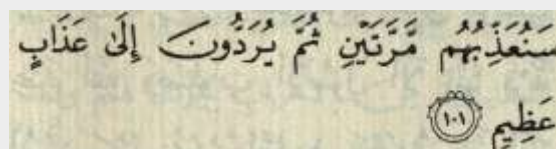 سَنُعَذِّبُهُم مَّرَّتَيْنِ ثُمَّ يُرَدُّونَ إِلَىٰ عَذَابٍ
عَظِيمٍ ١٠١